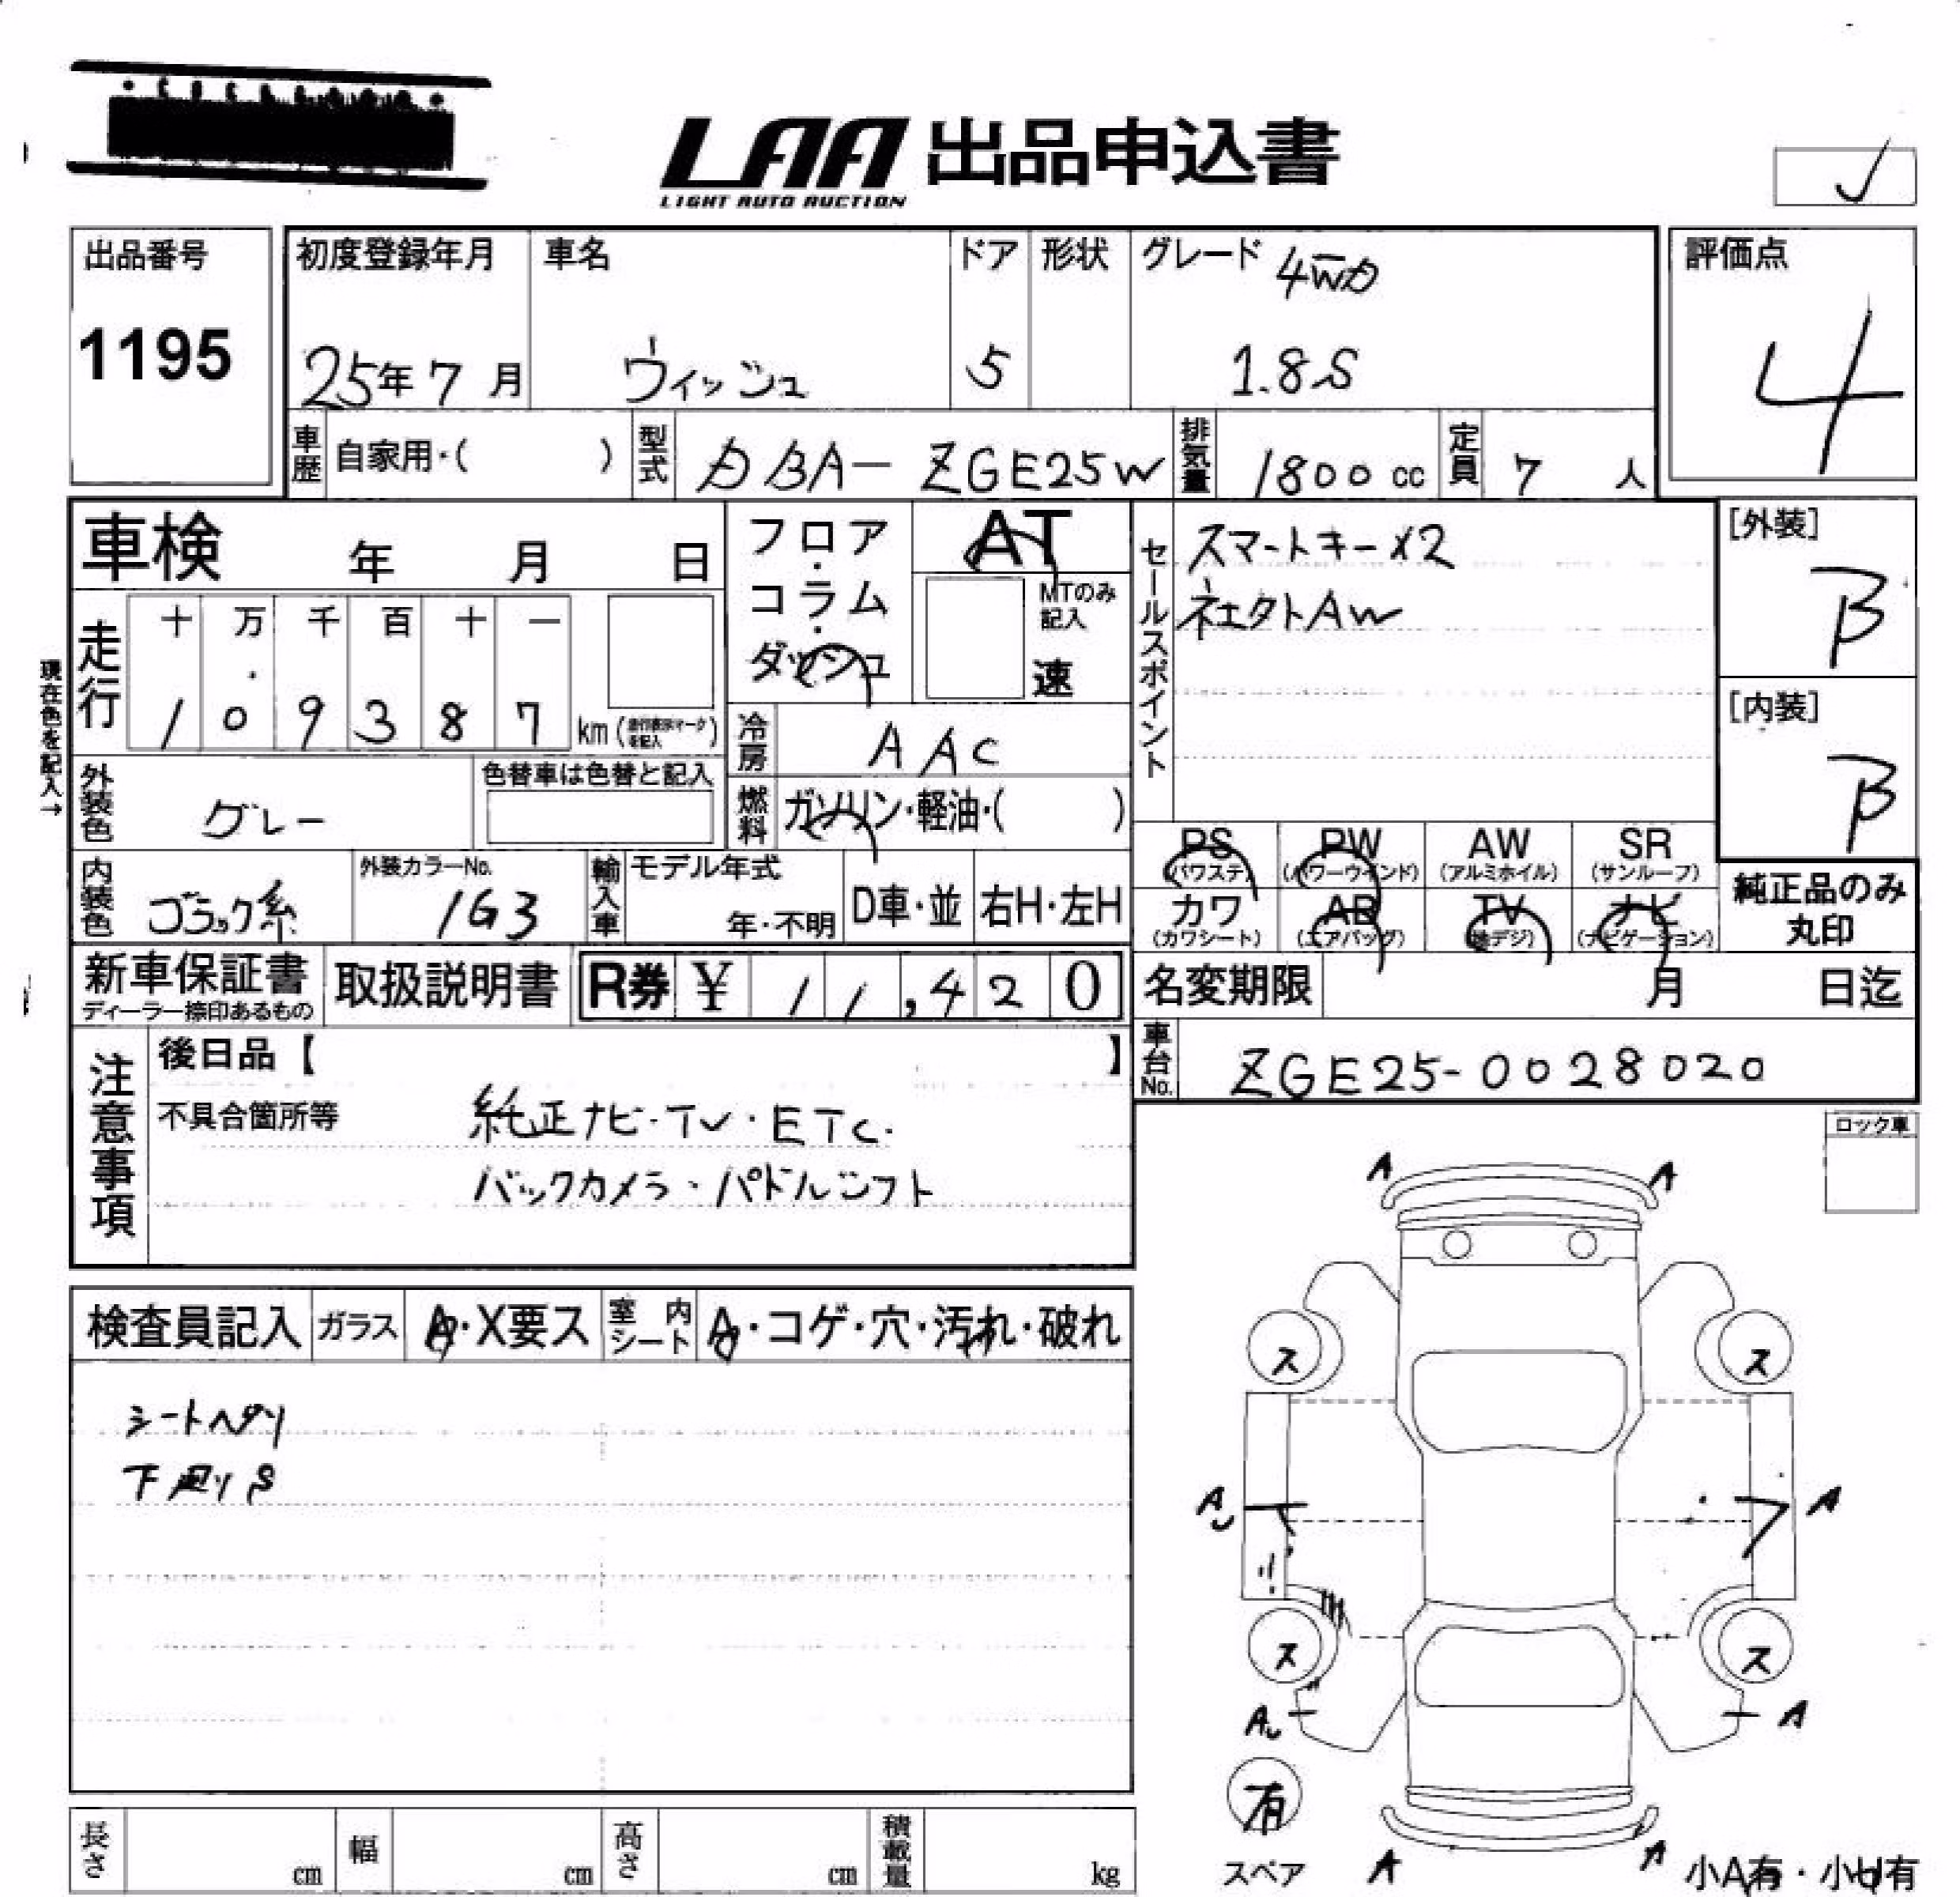 LAA 出品申込書
LIGHT AUTO AUCTION
出品番号
1195
初度登録年月
25年 7月
車名
ウィッシュ
ドア
5
形状
グレード 4WD
1.8S
評価点
4
車歴 自家用・( )
型式 DBA-ZGE25W
排気量 1800 cc
定員 7 人
車検 年 月 日
フロア・コラム・ダッシュ
AT
MTのみ記入
速
セールスポイント
スマートキー×2
ネエクトAW
[外装]
B
[内装]
B
現在色を記入→
走行
十 万 千 百 十 一
1 0 9 3 8 7 km (走行表示マークを記入)
冷房 AAC
燃料 ガソリン・軽油・( )
外装色 グレー
色替車は色替と記入
内装色 ブラック系
外装カラーNo.
1G3
輸入車 モデル年式
年・不明
D車・並
右H・左H
PS (パワステ)
PW (パワーウインド)
AW (アルミホイル)
SR (サンルーフ)
カワ (カワシート)
AB (エアバッグ)
TV (地デジ)
ナビ (ナビゲーション)
純正品のみ
丸印
新車保証書
ディーラー捺印あるもの
取扱説明書
R券 ¥ 11,420
名変期限 月 日迄
車台No. ZGE25-0028020
注意事項
後日品【 】
不具合箇所等
純正ナビ・TV・ETC・
バックカメラ・パドルシフト
ロック車
検査員記入
ガラス A・X要ス
室内シート A・コゲ・穴・汚れ・破れ
シートヘタリ
下廻りS
A A
ス ス
A A
ス ス
A A
有
スペア
A A
小A有・小U有
長さ cm
幅 cm
高さ cm
積載量 kg